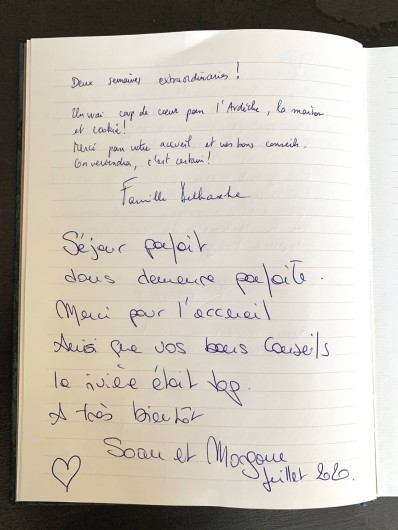 Deux semaines extraordinaires !
Un vrai coup de cœur pour l'Ardèche, la maison
et !
Merci pour votre accueil et vos bons conseils.
On reviendra, c'est certain !
Famille
Séjour parfait
dans demeure parfaite.
Merci pour l'accueil
Ainsi que vos bons Conseils
la rivière était top.
A très bientôt
Soan et Morgane
Juillet 2020.